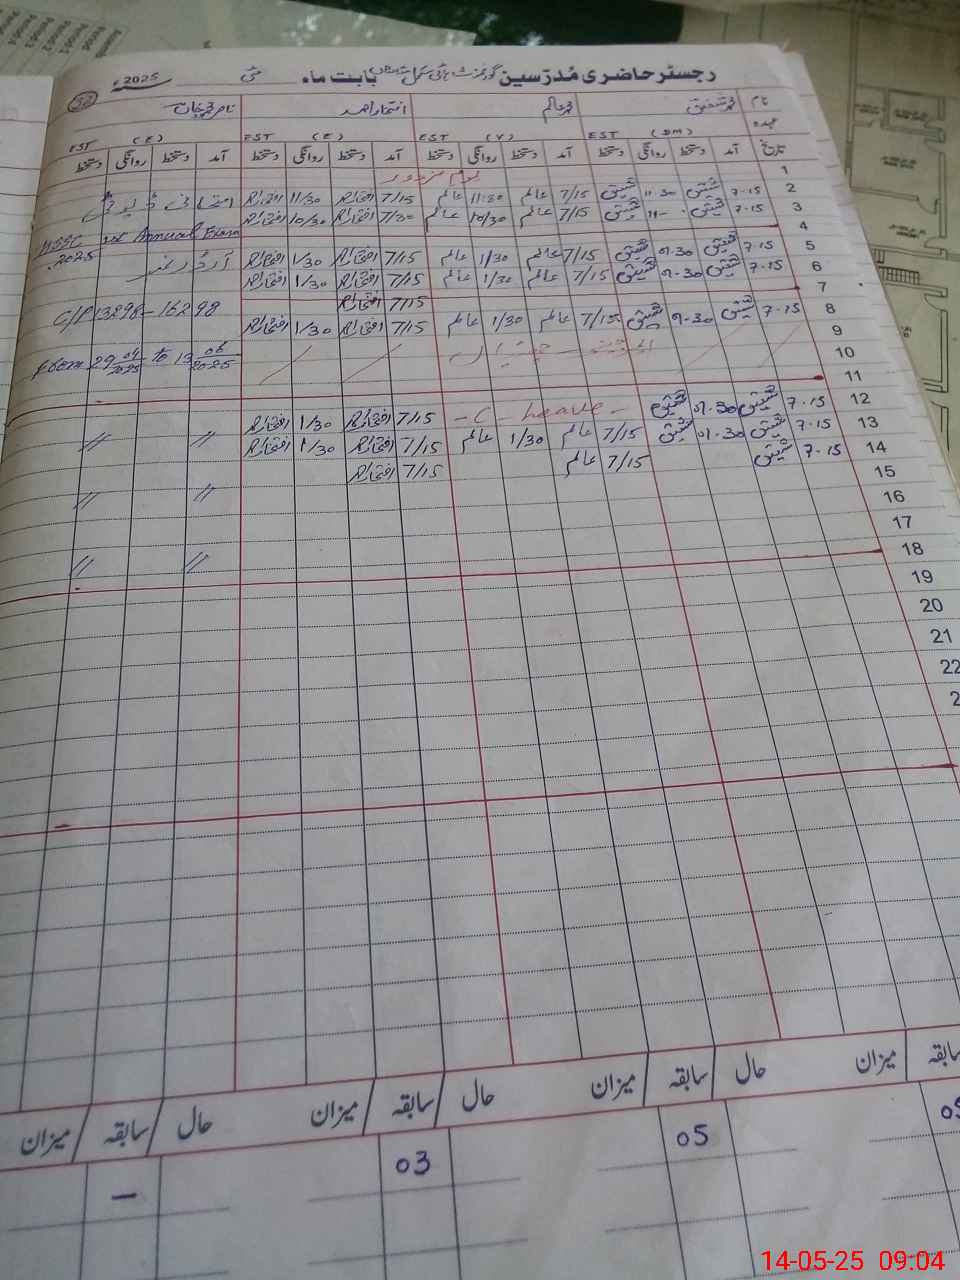 رجسٹر حاضری مُدرّسین گورنمنٹ ہائی سکول بابت ماہ مئی 2025ء
30
نام محمد شفیق محمد عالم افتخار احمد
عہدہ EST (DM) EST (V) EST (E) EST (E)
تاریخ آمد دستخط روانگی دستخط آمد دستخط روانگی دستخط آمد دستخط روانگی دستخط آمد دستخط روانگی دستخط
1 یوم مزدور
2 7-15 شفیق 11-30 شفیق 7/15 عالم 11:30 عالم 7/15 افتخار 11/30 افتخار امتحانی ڈیوٹی
3 7-15 شفیق 11- شفیق 7/15 عالم 10/30 عالم 7/30 افتخار 10/30 افتخار
4 1st Annual Exam
2025
5 7-15 شفیق 01-30 شفیق 7/15 عالم 1/30 عالم 7/15 افتخار 1/30 افتخار آرڈر نمبر
6 7-15 شفیق 01-30 شفیق 7/15 عالم 1/30 عالم 7/15 افتخار 1/30 افتخار
7 7/15 افتخار
8 7-15 شفیق 01-30 شفیق 7/15 عالم 1/30 عالم 7/15 افتخار 1/30 افتخار 13298-16298
9
10 from 29 04/2025 to 13 06/2025
11
12 7-15 شفیق 01-30 شفیق - C - leave - 7/15 افتخار 1/30 افتخار
13 7-15 شفیق 01-30 شفیق 7/15 عالم 1/30 عالم 7/15 افتخار 1/30 افتخار // //
14 7-15 شفیق 7/15 عالم 7/15 افتخار
15
16 // //
17
18 // //
19
20
21
22
2
سابقہ میزان حال سابقہ میزان حال سابقہ میزان حال سابقہ میزان
05 05 03 –
14-05-25 09:04